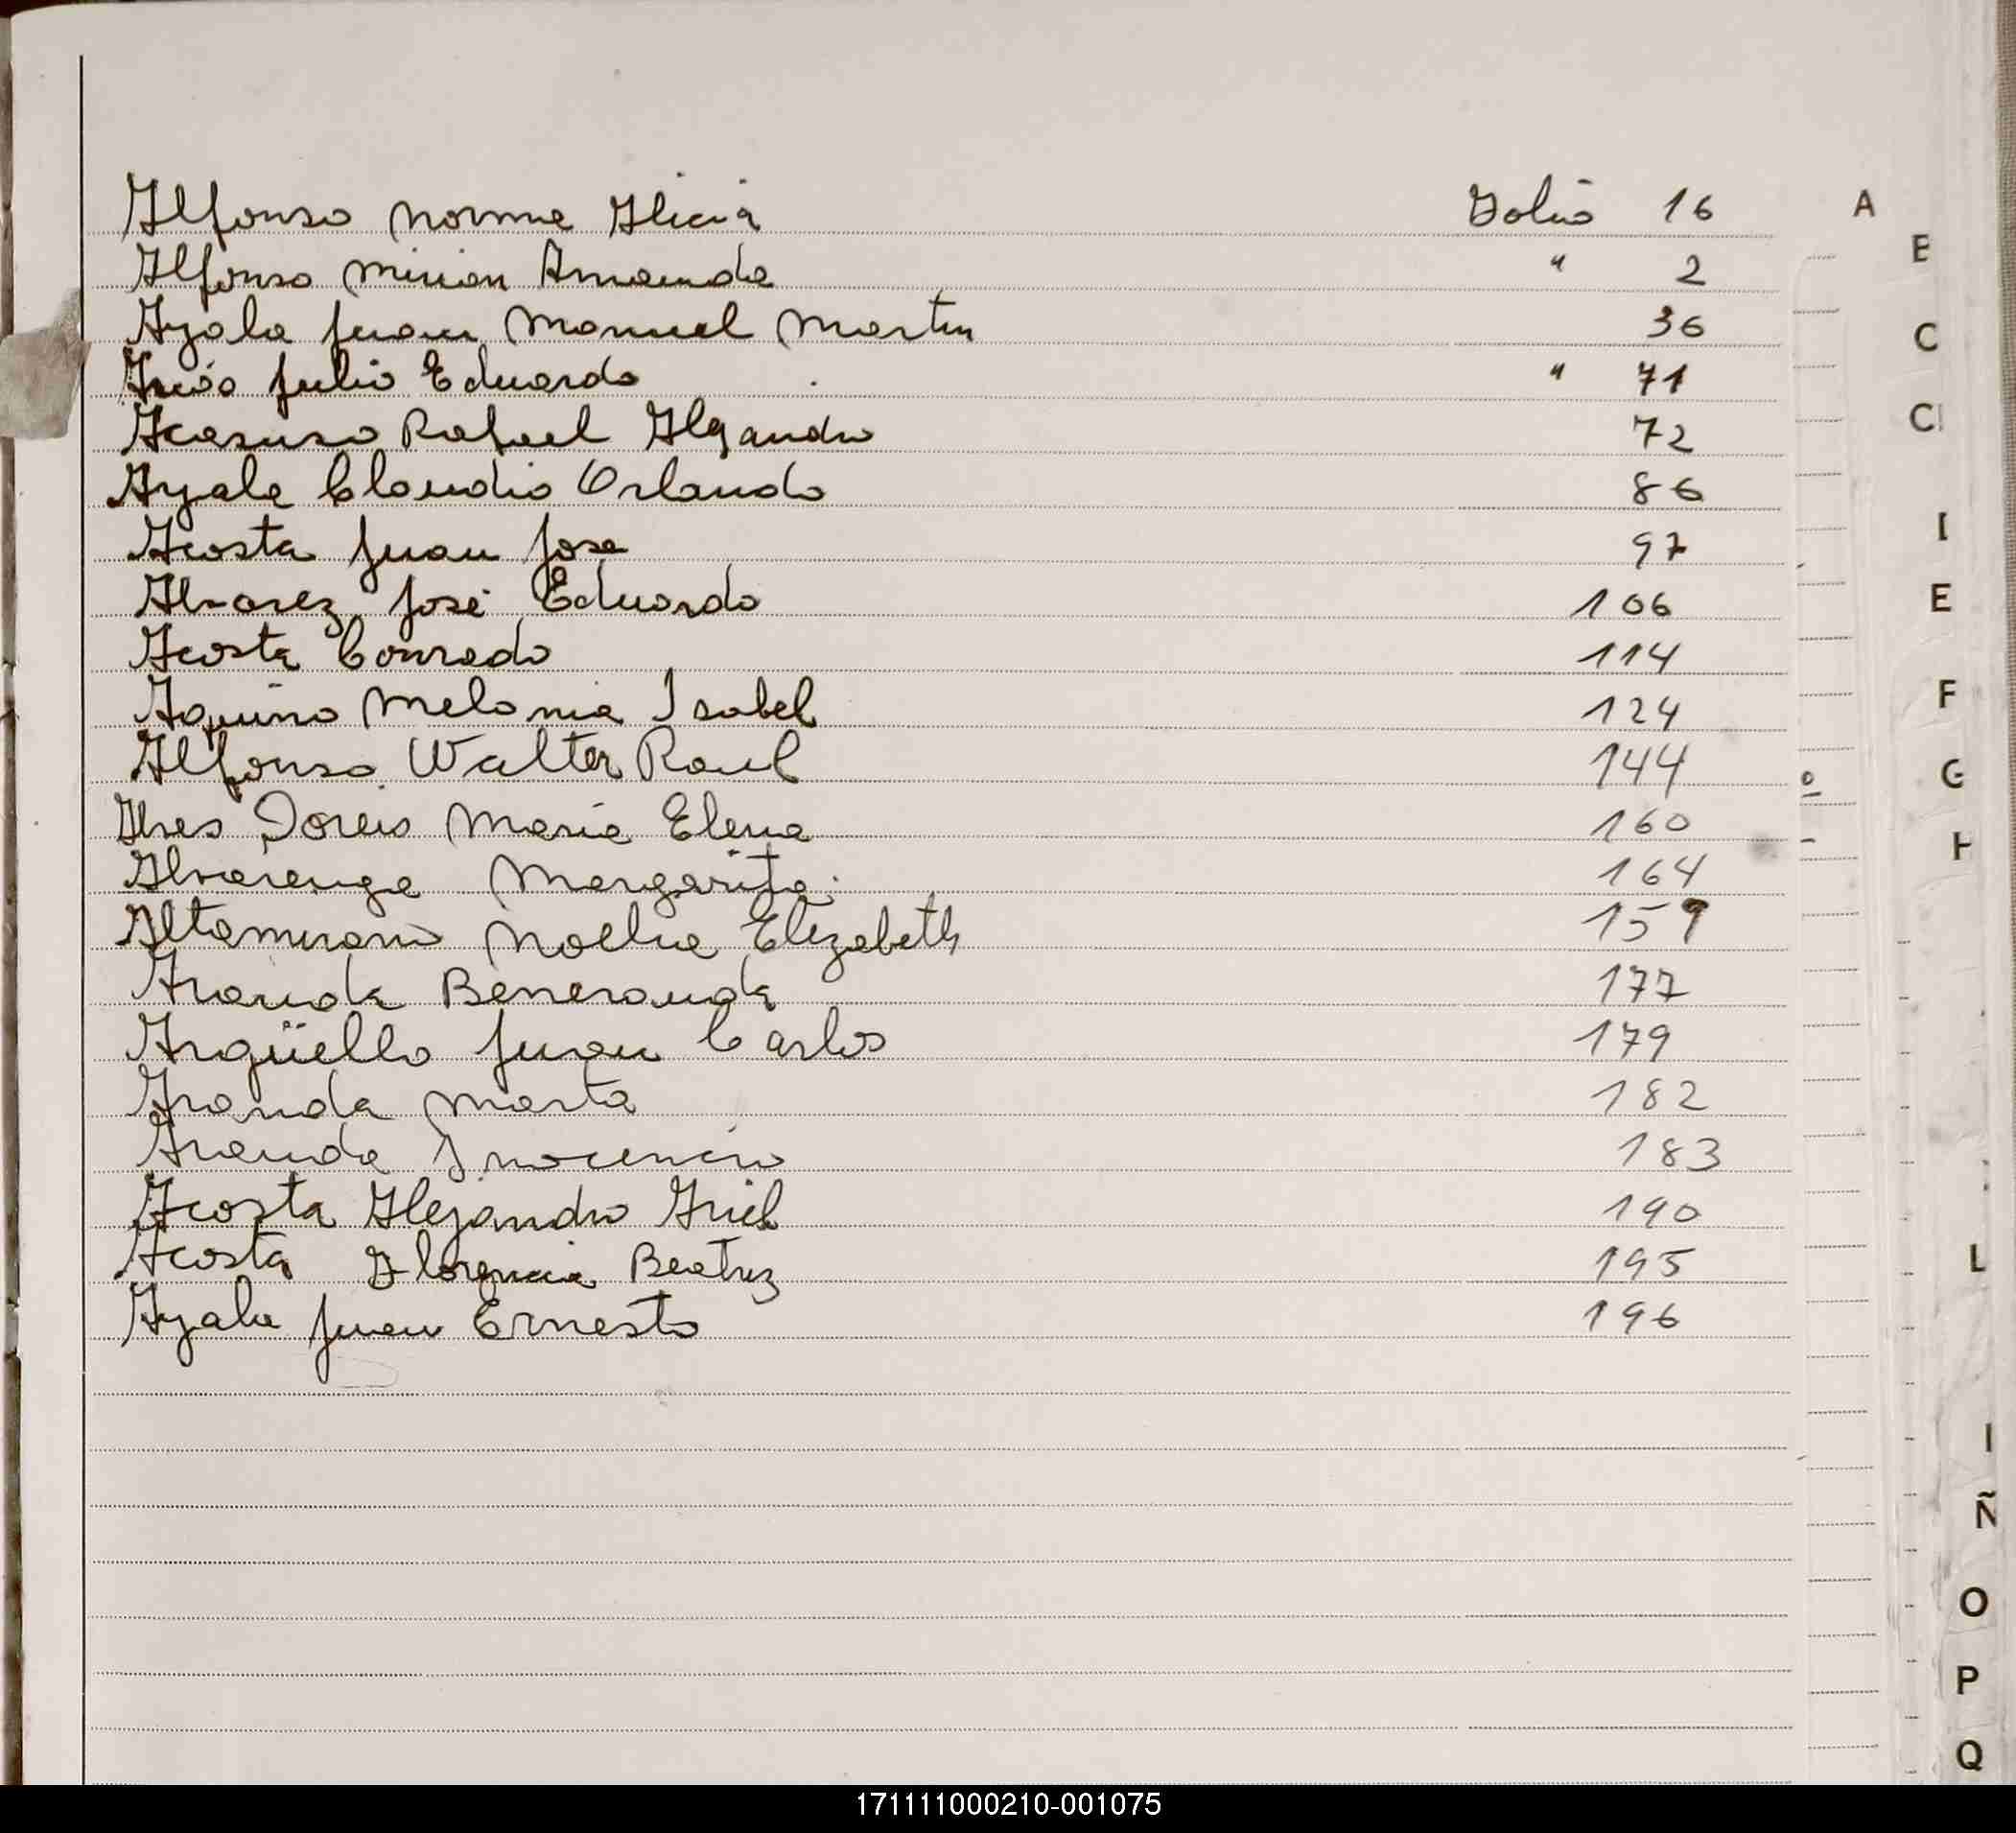 Alfonso Norma Alicia Folio 16
Alfonso Mirian Amanda " 2
Ayala Juan Manuel Martin 36
Julio Eduardo " 71
Acasuso Rafael Alejandro 72
Ayala Claudio Orlando 86
Acosta Juan Jose 97
Alvarez José Eduardo 106
Acosta Conrado 114
Aquino Melania Isabel 124
Alfonso Walter Raul 144
Maria Elena 160
Alvarenga Margarita 164
Altamirano Noelia Elizabeth 159
Aranda Beneranda 177
Argüello Juan Carlos 179
Aranda Marta 182
Aranda Inocencio 183
Acosta Alejandro Ariel 190
Acosta Florencia Beatriz 195
Ayala Juan Ernesto 196
A
E
C
I
E
F
G
H
L
Ñ
O
P
Q
171111000210-001075